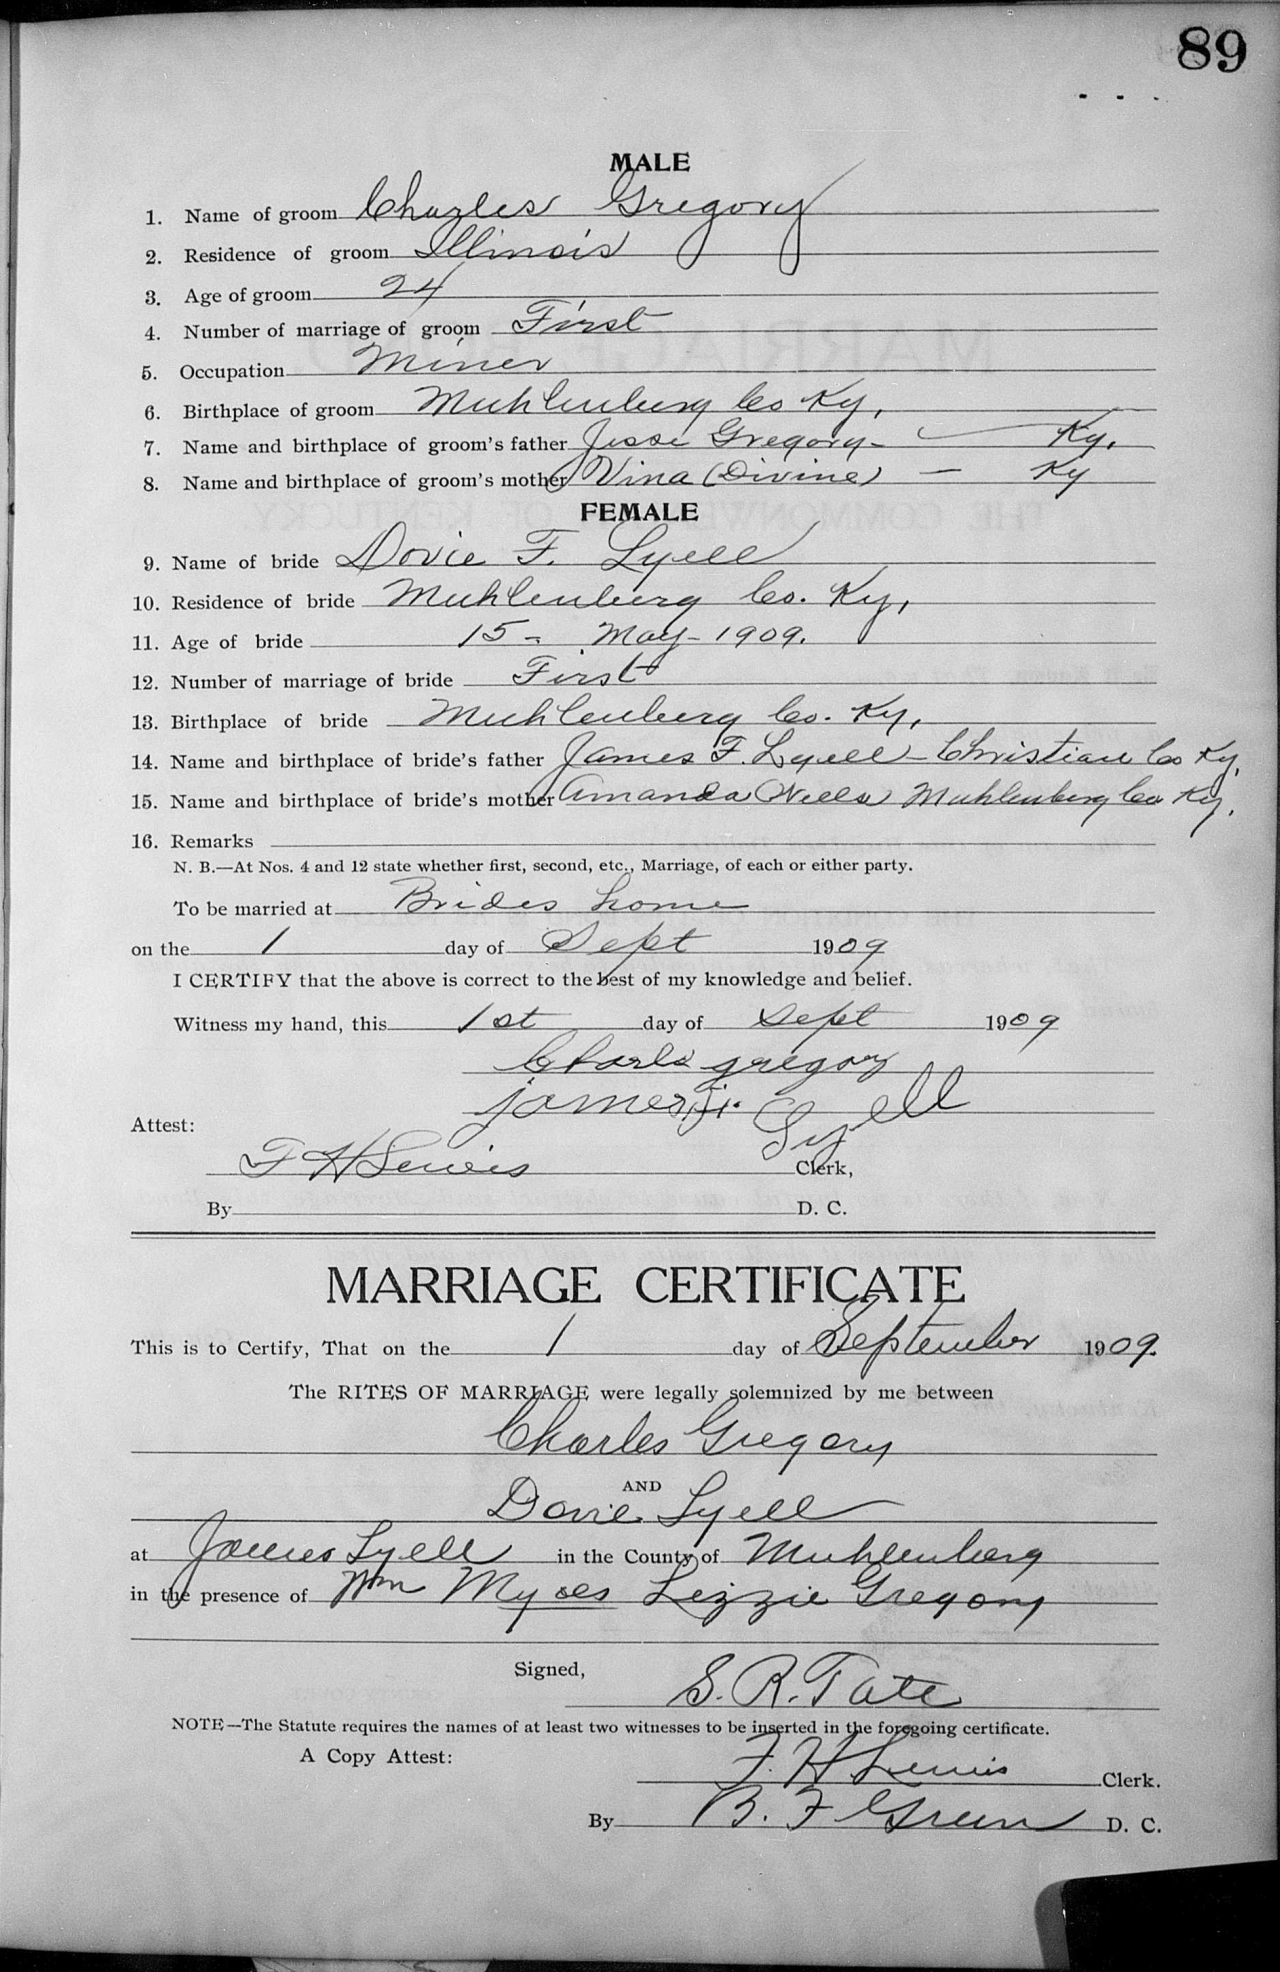 89
MALE
1. Name of groom Charles Gregory
2. Residence of groom Illinois
3. Age of groom 24
4. Number of marriage of groom First
5. Occupation Miner
6. Birthplace of groom Muhlenberg Co Ky,
7. Name and birthplace of groom's father Jesse Gregory - Ky.
8. Name and birthplace of groom's mother Vina (Divine) - Ky
FEMALE
9. Name of bride Dovie F. Lyell
10. Residence of bride Muhlenberg Co. Ky,
11. Age of bride 15 - May - 1909.
12. Number of marriage of bride First
13. Birthplace of bride Muhlenberg Co. Ky,
14. Name and birthplace of bride's father James F. Lyell - Christian Co Ky,
15. Name and birthplace of bride's mother Amanda Wells Muhlenberg Co Ky.
16. Remarks
N. B.—At Nos. 4 and 12 state whether first, second, etc., Marriage, of each or either party.
To be married at Brides home
on the 1 day of Sept 1909
I CERTIFY that the above is correct to the best of my knowledge and belief.
Witness my hand, this 1st day of Sept 1909
Charls gregory
james Lyell
Attest:
F H Lewis Clerk,
By D. C.
MARRIAGE CERTIFICATE
This is to Certify, That on the 1 day of September 1909.
The RITES OF MARRIAGE were legally solemnized by me between
Charles Gregory
AND
Dovie Lyell
at James Lyell in the County of Muhlenberg
in the presence of Wm Lizzie Gregory
Signed,
S. R. Tate
NOTE—The Statute requires the names of at least two witnesses to be inserted in the foregoing certificate.
A Copy Attest:
F. H Lewis Clerk.
By B. F Green D. C.